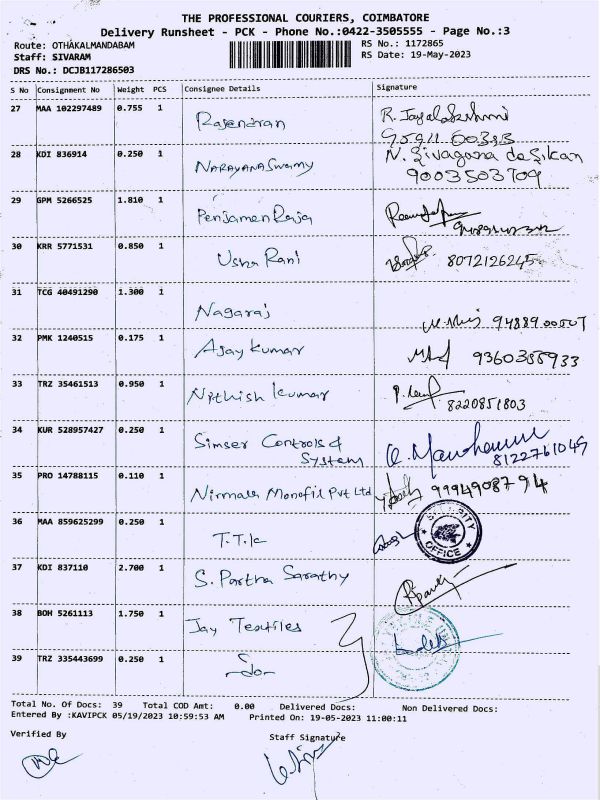 THE PROFESSIONAL COURIERS, COIMBATORE
Delivery Runsheet - PCK - Phone No.:0422-3505555 - Page No.:3
Route: OTHAKALMANDABAM
RS No.: 1172865
Staff: SIVARAM
RS Date: 19-May-2023
DRS No.: DCJB117286503
S No Consignment No Weight PCS Consignee Details Signature
27 MAA 102297489 0.755 1 Rajendran R. Jayalakshmi
28 KDI 836914 0.250 1 NARAYANASwamy N. Sivagana desikan
9003503709
29 GPM 5266525 1.810 1 Penjamen Raja
30 KRR 5771531 0.850 1 Usha Rani 8072126245
31 TCG 40491290 1.300 1 Nagaraj
32 PMK 1240515 0.175 1 Ajay kumar 9360355933
33 TRZ 35461513 0.950 1 Nithish kumar 8220851803
34 KUR 528957427 0.250 1 Simser Controls &
System 8122761049
35 PRO 14788115 0.110 1 Nirmala Monofil Pvt Ltd 9994908794
36 MAA 859625299 0.250 1 T.T.k SECURITY OFFICE
37 KDI 837110 2.700 1 S. Partha Sarathy
38 BOH 5261113 1.750 1 Jay Textiles
39 TRZ 335443699 0.250 1 -do-
Total No. Of Docs: 39 Total COD Amt: 0.00 Delivered Docs: Non Delivered Docs:
Entered By :KAVIPCK 05/19/2023 10:59:53 AM Printed On: 19-05-2023 11:00:11
Verified By Staff Signature